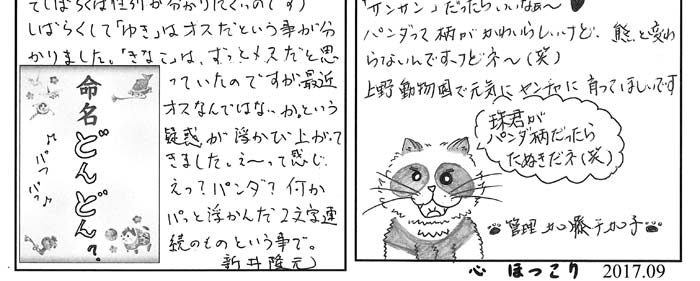 てしばらくは性別が分かりにくいのです)
しばらくして「ゆき」はオスだという事が分
かりました。「きなこ」は、ずっとメスだと思
っていたのですが最近
オスなんではないか?という
疑惑が浮かび上がって
きました。え〜って感じ
えっ?パンダ?何か
パッと浮かんだ2文字連
続のものという事で。
新井隆元
命名
どんどん?
♪パフパフ♪
「サンサン」だったらいいなぁ〜
パンダって柄がかわいらしいけど、熊と変わ
らないんですけどネ〜(笑)
上野動物園で元気にヤンチャに育ってほしいです
珠君が
パンダ柄だったら
たぬきだネ(笑)
管理 加藤千加子
心 ほっこり 2017.09